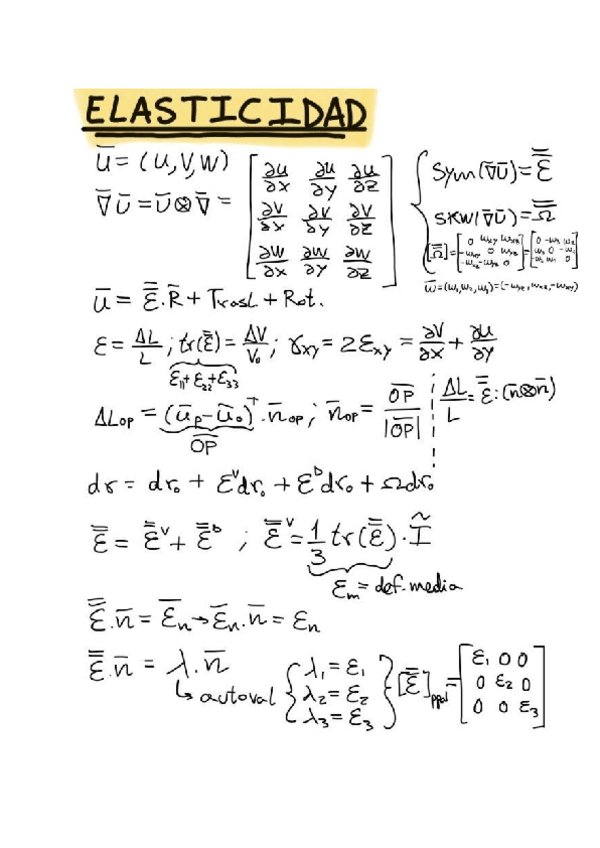 ELASTICIDAD
ū = (u, v, w)
∇ū = ū⊗∇̄ = [∂u/∂x ∂u/∂y ∂u/∂z; ∂v/∂x ∂v/∂y ∂v/∂z; ∂w/∂x ∂w/∂y ∂w/∂z]
{ Sym(∇ū) = ε̿
SKW(∇ū) = Ω̿
[Ω̿] = [0 ωxy ωxz; -ωxy 0 ωyz; -ωxz -ωyz 0] = [0 -ω3 ω2; ω3 0 -ω1; -ω2 ω1 0]
ω̄ = (ω1, ω2, ω3) = (-ωyz, ωxz, -ωxy)
ū = ε̿·R̄ + Trasl + Rot.
ε = ΔL/L ; tr(ε̿) = ΔV/V₀ ; γxy = 2εxy = ∂v/∂x + ∂u/∂y
ε11 + ε22 + ε33
ΔLop = (ūp - ūo)ᵀ · n̄op ; n̄op = OP/|OP|
OP
ΔL/L = ε̿ : (n̄⊗n̄)
dr = dr₀ + εᵛdr₀ + εᴰdr₀ + Ωdr₀
ε̿ = ε̿ᵛ + ε̿ᴰ ; ε̿ᵛ = 1/3 tr(ε̿) · Ĩ
εm = def. media
ε̿·n̄ = ε̄n → ε̄n·n̄ = εn
ε̿·n̄ = λ·n̄
↳ autoval { λ1 = ε1
λ2 = ε2
λ3 = ε3 } [ε̿]ppal = [ε1 0 0; 0 ε2 0; 0 0 ε3]